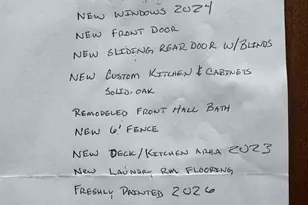 NEW WINDOWS 2024
NEW FRONT DOOR
NEW SLIDING REAR DOOR W/BLINDS
NEW CUSTOM KITCHEN & CABINETS
SOLID OAK
REMODELED FRONT HALL BATH
NEW 6' FENCE
NEW DECK/KITCHEN AREA 2023
NEW LAUNDRY RM FLOORING
FRESHLY PAINTED 2026